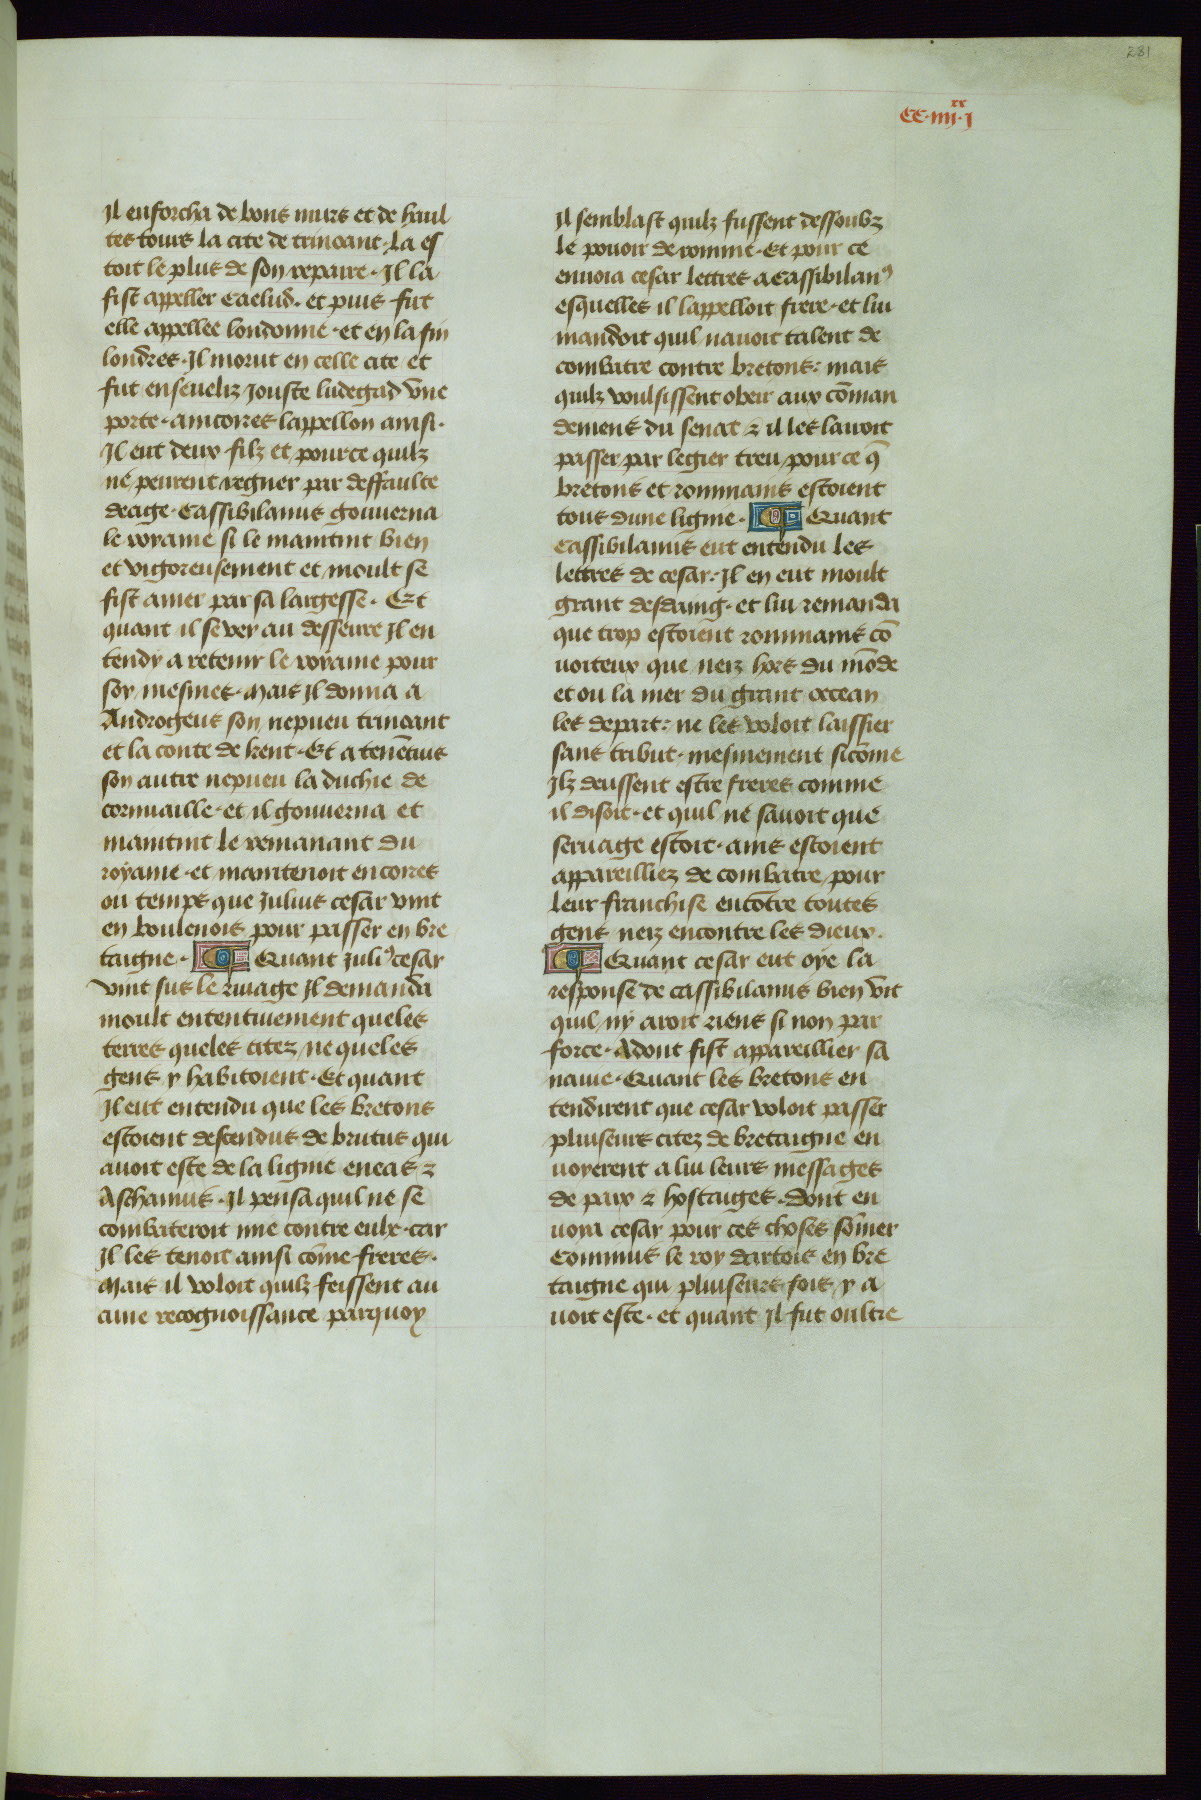 281
CC·iiii^xx·j
Il enforcha de bons murs et de haul
tes tours la cite de trinoant· La es
toit le plus de son repaire· Il la
fist appeller Caelud· et puis fut
elle appellee londonne· et en la fin
londres· Il morut en celle cite et
fut enseueliz Jouste ludegad vne
porte· aincores lappellon ainsi·
Il eut deux filz et pource quilz
ne peurent regner par deffaulte
deage· Cassibilanus gouuerna
le royame si le maintint bien
et vigoreusement et moult se
fist amer par sa largesse· Et
quant il se vey au desseure Il en
tendy a retenir le royame pour
soy mesmes· Mais Il donna a
Androgeus son nepueu trinoant
et la conte de kent· Et a tenēcius
son autre nepueu la duchie de
cornuaille· et il gouuerna et
maintint le remanant du
royame· et maintenoit encores
ou temps que Julius cesar vint
en boulenois pour passer en bre
taigne· Quant Juliꝰ cesar
vint sus le riuage Il demanda
moult ententiuement queles
terres queles citez ne queles
gens y habitoient· Et quant
Il eut entendu que les bretons
estoient descendus de brutus qui
auoit este de la lignie eneas ⁊
Aschanius· Il pensa quil ne se
combateroit mie contre eulx· car
Il les tenoit ainsi cōme freres·
Mais il voloit quilz feissent au
cune recognoissance parquoy
Il semblast quilz fussent dessoubz
le pouoir de romme· Et pour ce
enuoia cesar lettres a Cassibilanꝰ
esquelles il lappelloit frere· et lui
mandoit quil nauoit talent de
combatre contre bretons: mais
quilz voulsissent obeir aux cōman
demens du senat ⁊ il les lairoit
passer par legier treu pour ce q̄
bretons et rommains estoient
tous dune lignie· Quant
Cassibilanus eut entendu les
lettres de cesar: Il en eut moult
grant desdaing· et lui remanda
que trop estoient rommains cō
uoiteux que neiz hors du mōde
et ou la mer du grant occean
les depart: ne les voloit laissier
sans tribut· mesmement sicōme
Ilz deussent estre freres comme
il disoit· et quil ne sauoit que
seruage estoit· ains estoient
appareilliez de combatre pour
leur franchise encōtre toutes
gens neiz encontre les dieux·
Quant cesar eut oye la
response de cassibilanus bien vit
quil ny aroit riens si non par
force· Adont fist appareillier sa
nauie· Quant les bretons en
tendirent que cesar voloit passer
pluiseurs citez de bretaigne en
uoyerent a lui leurs messages
de paix ⁊ hostaiges· Dont en
uoya cesar pour ces choses sōmer
Commus le roy dartois en bre
taigne qui pluiseurs fois y a
uoit este· et quant Il fut oultre